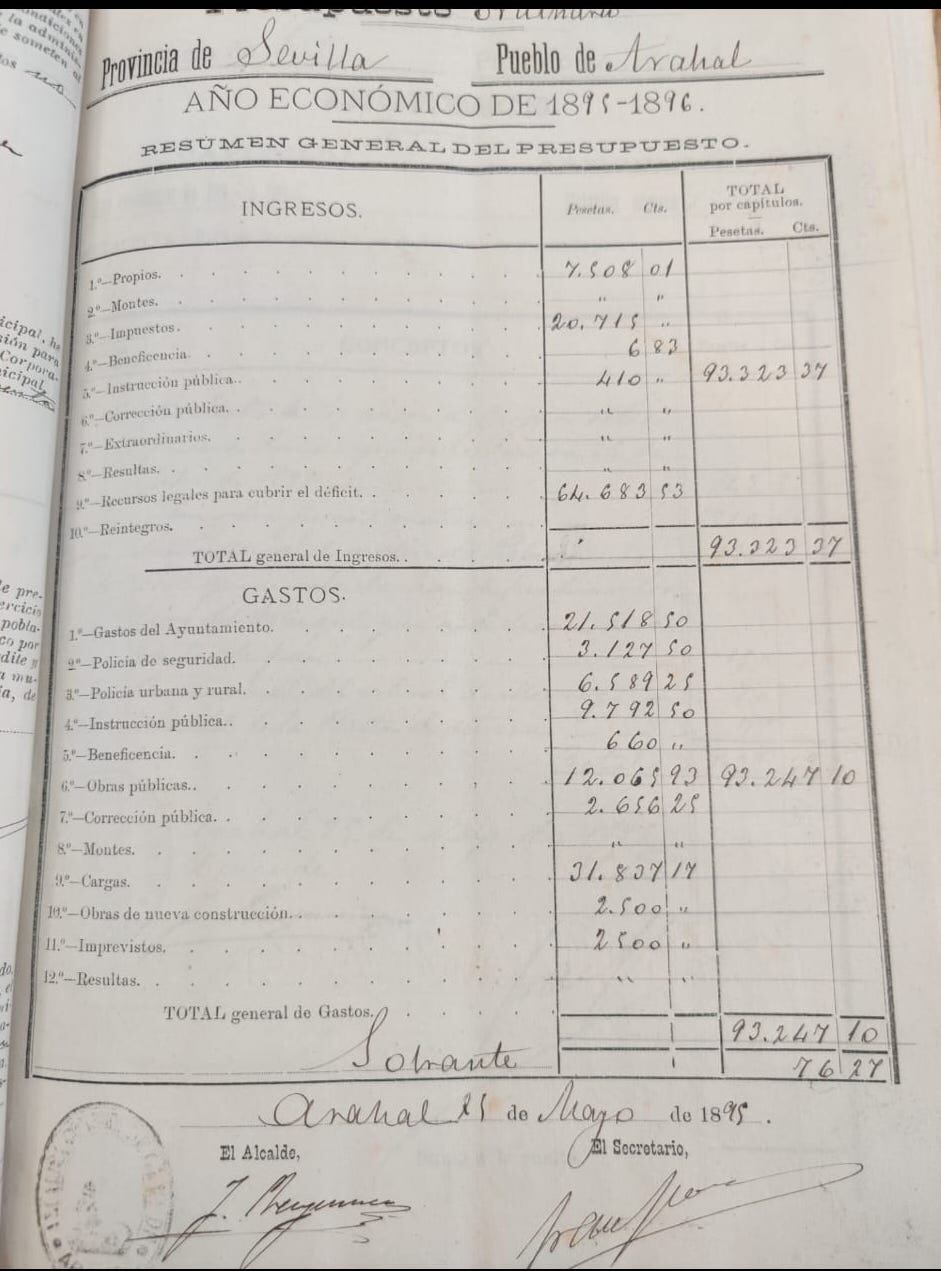 Presupuesto Ordinario
Provincia de Sevilla Pueblo de Arahal
AÑO ECONÓMICO DE 1895-1896.
RESÚMEN GENERAL DEL PRESUPUESTO.
INGRESOS. Pesetas. Cts. TOTAL por capítulos. Pesetas. Cts.
1.º—Propios. 7.508 01
2.º—Montes. " "
3.º—Impuestos. 20.715 "
4.º—Beneficencia. 6 83
5.º—Instrucción pública. 410 " 93.323 37
6.º—Corrección pública. " "
7.º—Extraordinarios. " "
8.º—Resultas. " "
9.º—Recursos legales para cubrir el déficit. 64.683 53
10.º—Reintegros.
TOTAL general de Ingresos. 93.323 37
GASTOS.
1.º—Gastos del Ayuntamiento. 21.518 50
2.º—Policía de seguridad. 3.127 50
3.º—Policía urbana y rural. 6.589 25
4.º—Instrucción pública. 9.792 50
5.º—Beneficencia. 660 "
6.º—Obras públicas. 12.065 93 93.247 10
7.º—Corrección pública. 2.656 25
8.º—Montes. " "
9.º—Cargas. 31.837 17
10.º—Obras de nueva construcción. 2.500 "
11.º—Imprevistos. 2500 "
12.º—Resultas. " "
TOTAL general de Gastos. 93.247 10
Sobrante 76 27
Arahal 15 de Mayo de 1895.
El Alcalde, El Secretario,